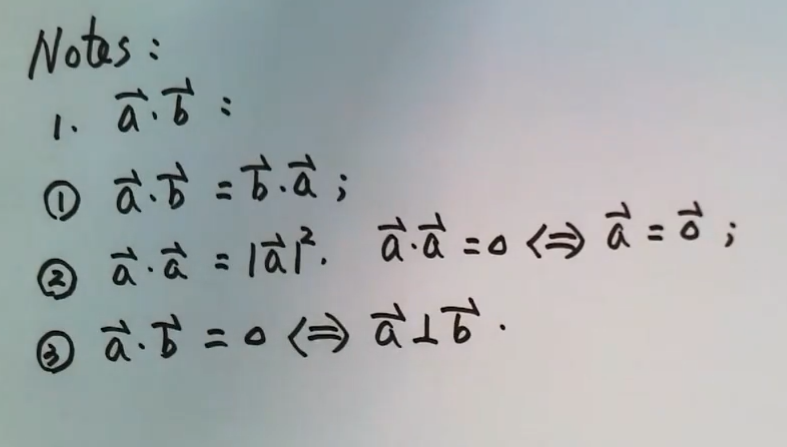 Notes:
1. $\vec{a} \cdot \vec{b}$ :
① $\vec{a} \cdot \vec{b} = \vec{b} \cdot \vec{a}$ ;
② $\vec{a} \cdot \vec{a} = |\vec{a}|^2$. $\vec{a} \cdot \vec{a} = 0 \Leftrightarrow \vec{a} = \vec{0}$ ;
③ $\vec{a} \cdot \vec{b} = 0 \Leftrightarrow \vec{a} \perp \vec{b}$ .